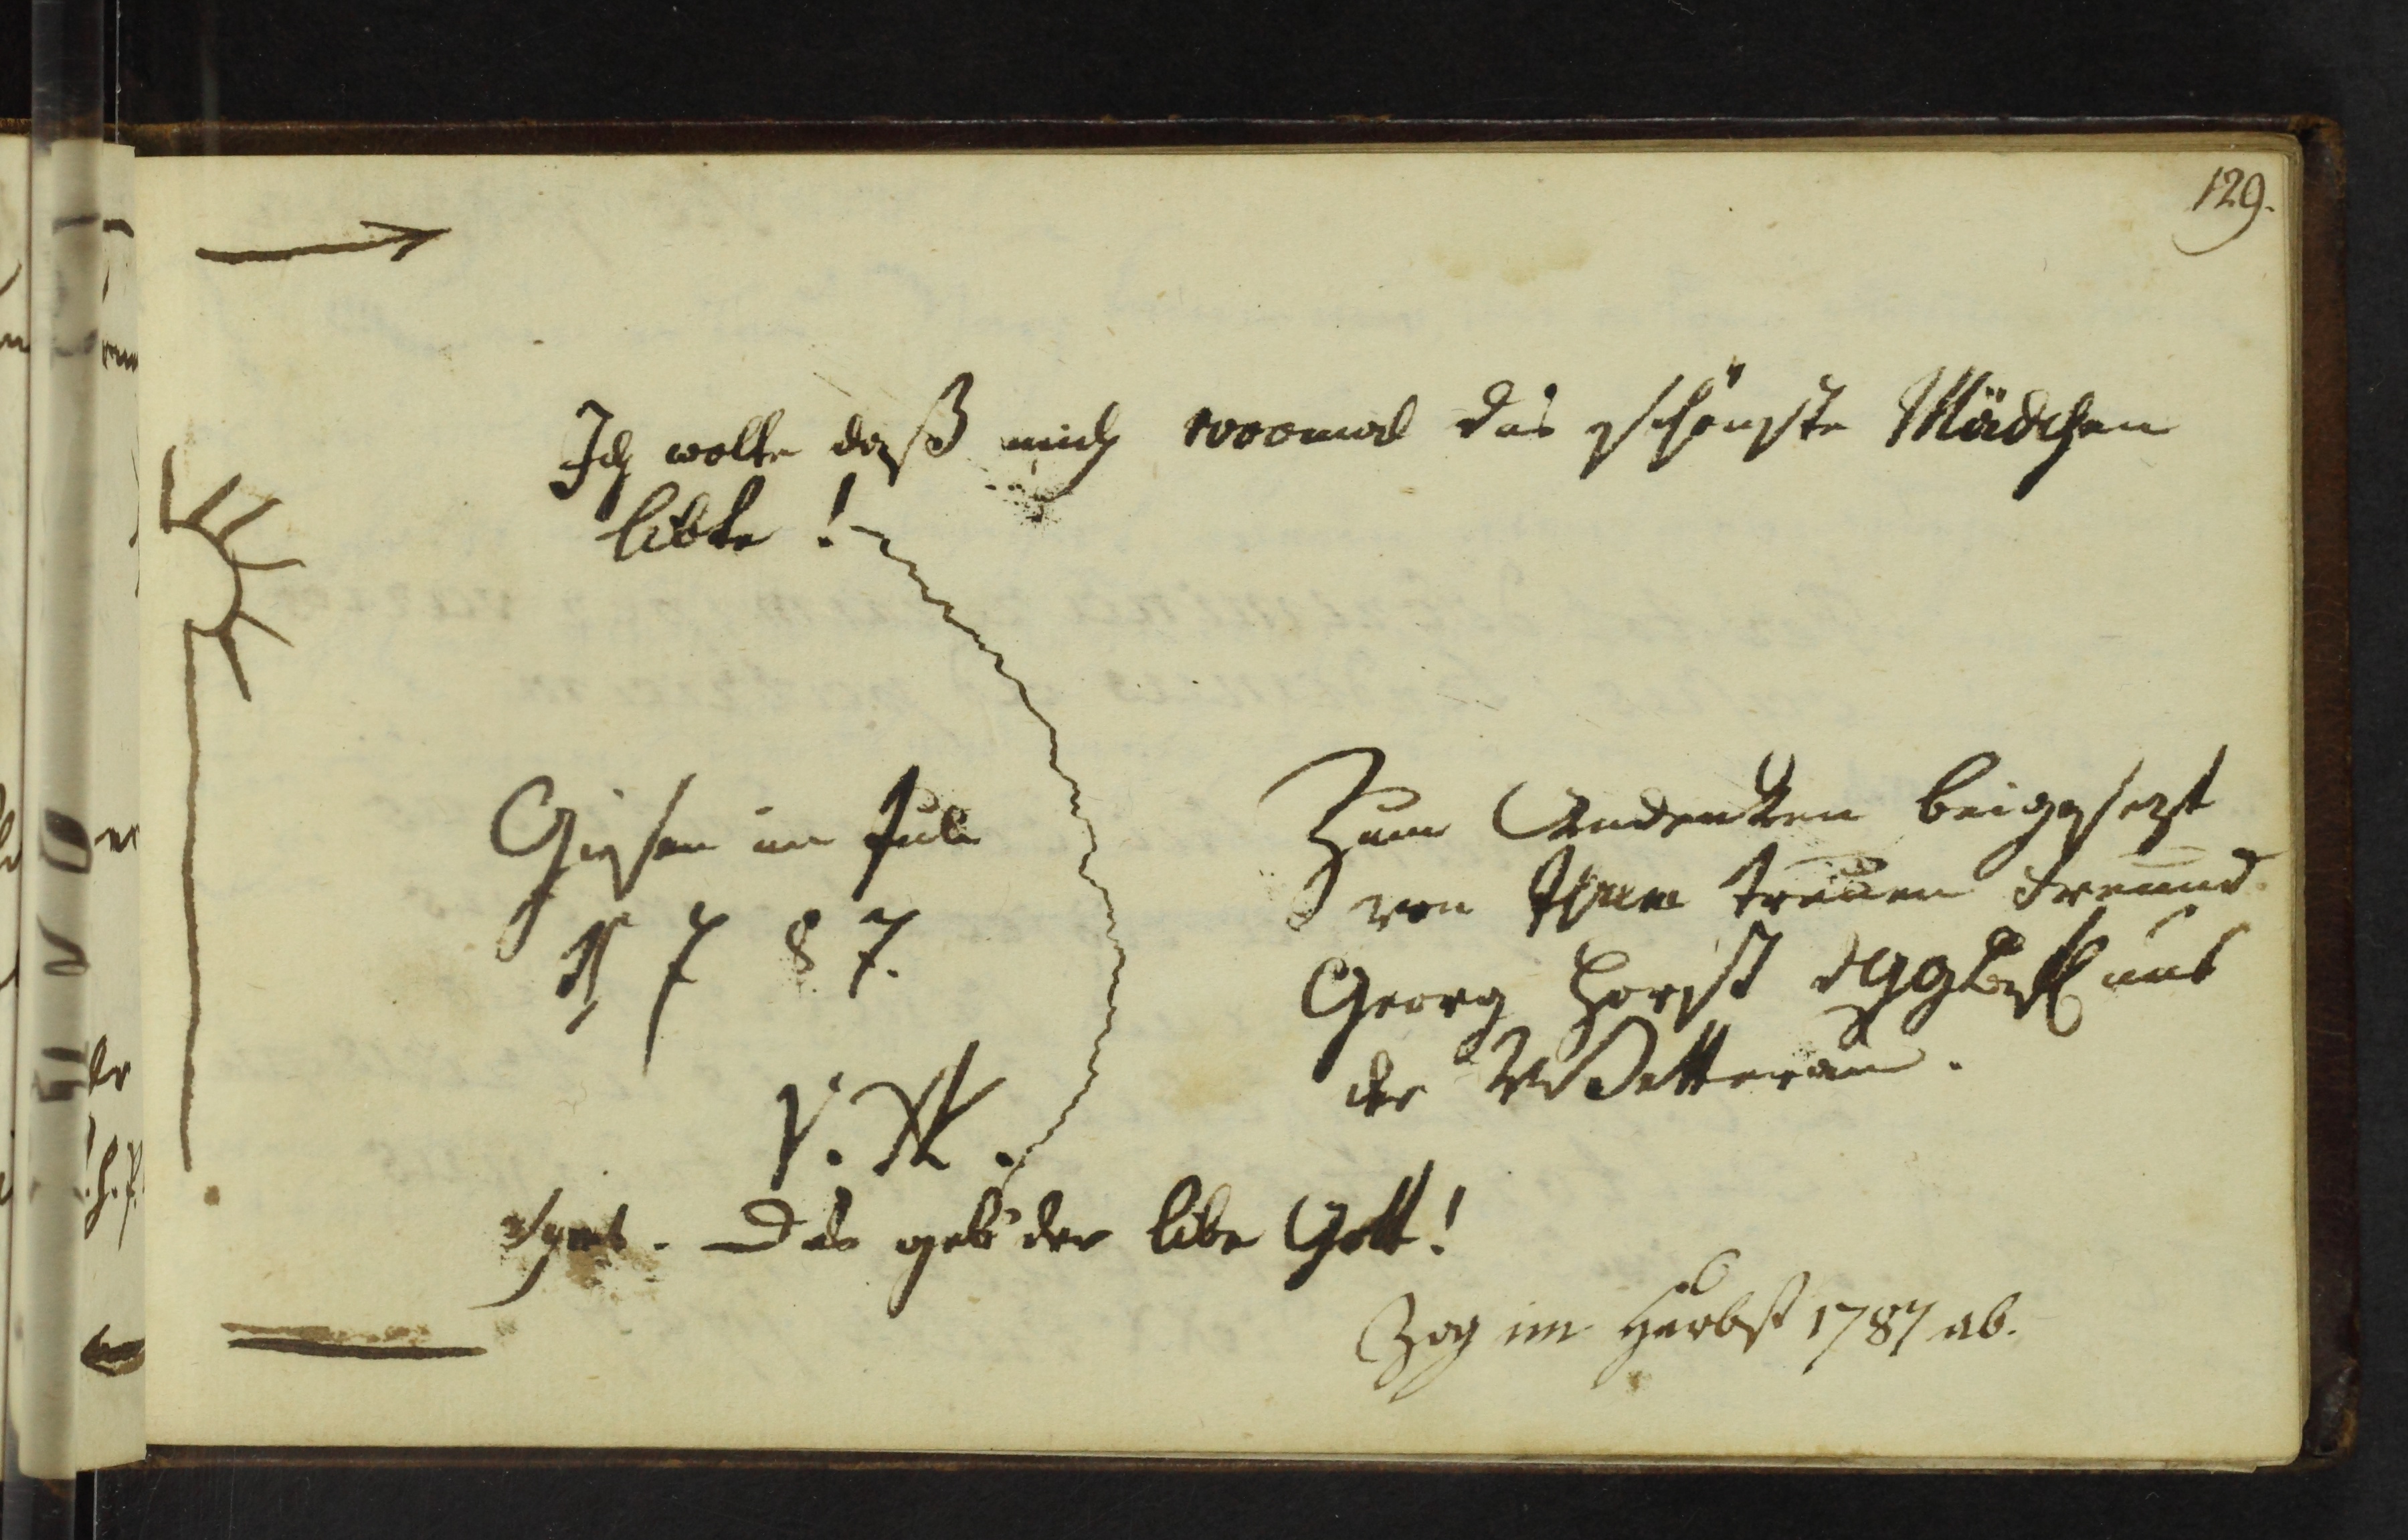 129.
Ich wolte daß mich 1000mal das schönste Mädchen
libte!
Giesen im Juli
1787.
V. M.
Das geb' der libe Gott!
Zum Andenken beigesezt
von Ihrem treuen Freund
Georg Horst aus
der Wetterau.
Zog im Herbst 1787 ab.